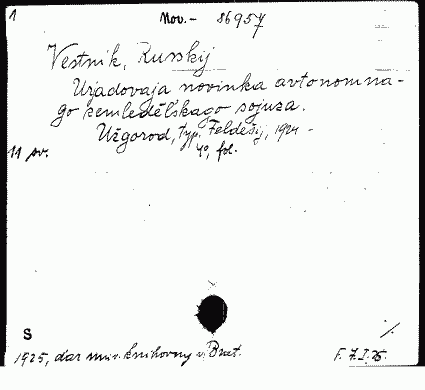 1 Nov. - 86957
Vestnik, Russkij
Urjadovaja novinka avtonomna-
go zemledělskago sojuza.
Užgorod, typ. Feldešij, 1924 -
11 sv. 4º, fol.
S
1925, dar univ. knihovny v Brat. F. Z. I. 25.